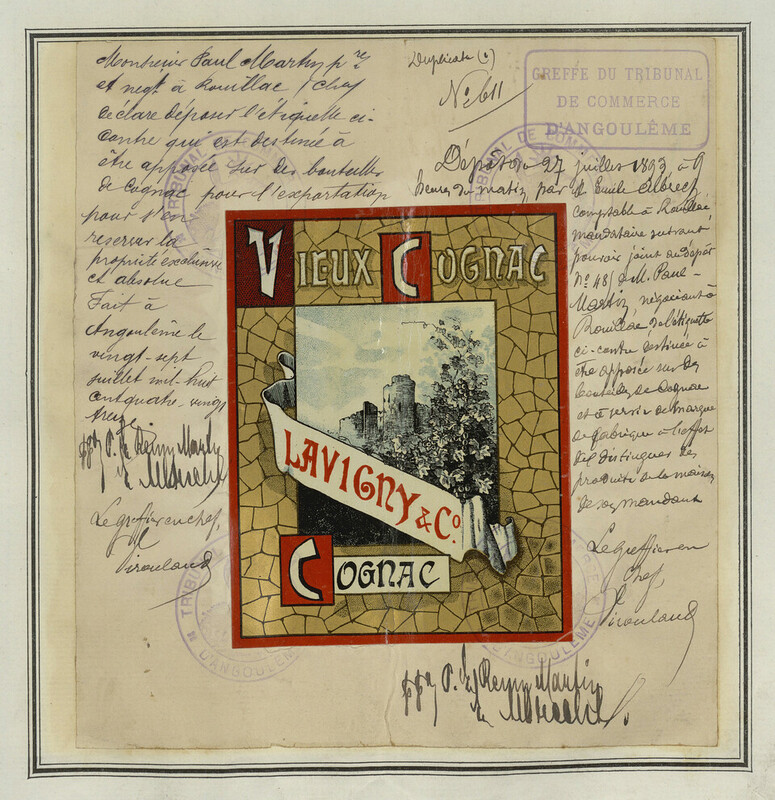 Monsieur Paul Martin p^re
et négt à Rouillac (Chte
déclare déposer l'étiquette ci-
contre qui est destinée à
être apposée sur des bouteilles
de Cognac pour l'exportation
pour s'en
réserver la
propriété exclusive
et absolue
Fait à
Angoulême le
vingt-sept
juillet mil-huit
cent quatre-vingt
treize
ppon P. de Rémy Martin
Le greffier en chef,
Duplicata
No 611
GREFFE DU TRIBUNAL
DE COMMERCE
D'ANGOULÊME
Déposé le 27 juillet 1893 à 9
heures du matin par M Emile
comptable à Rouillac
mandataire suivant
pouvoir joint au dépôt
No 481 de M. Paul-
Martin négociant à
Rouillac de l'étiquette
ci-contre destinée à
être apposée sur des
bouteilles de Cognac
et à servir de marque
de fabrique à l'effet
de distinguer les
produits de la maison
de son mandant
Le Greffier en
Chef,
ppon P. de Rémy Martin
VIEUX COGNAC
LAVIGNY & Co.
COGNAC
TRIBUNAL DE COMMERCE
D'ANGOULÊME